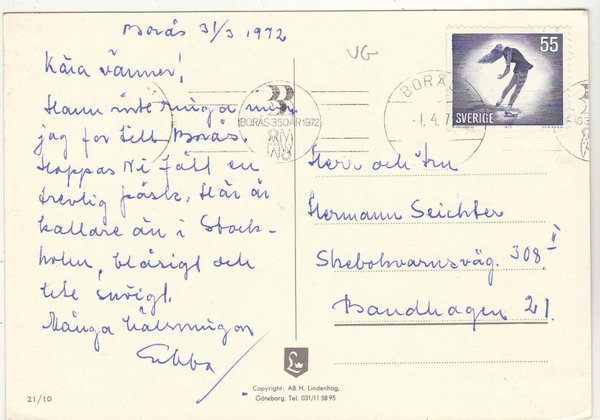 Borås 31/3 1972
Kära vänner!
Hann inte ringa innan
jag for till Borås.
Hoppas Ni fått en
trevlig påsk. Här är
kallare än i Stock-
holm, blåsigt och
lite snöigt.
Många hälsningar
Ebba
VG
BORÅS 350 ÅR 1972
BORÅS
-1.4.7
55
SVERIGE
Herr och Fru
Hermann Seichter
Skebokvarnsväg. 308 II
Bandhagen 21.
Copyright: AB H. Lindenhag,
Göteborg. Tel. 031/11 58 95
21/10